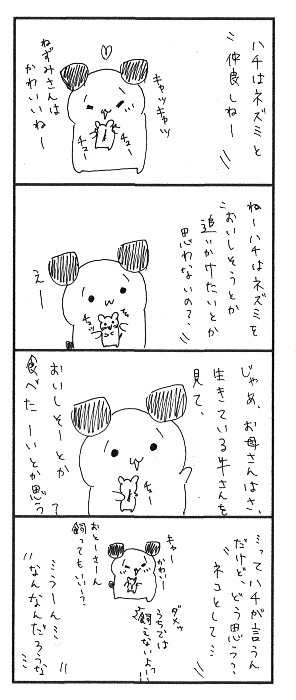 ハチはネズミと
仲良しねー
キャッキャッ
チュー
チュー
ねずみさんは
かわいいねー
ねーハチはネズミを
おいしそうとか
追いかけたいとか
思わないの?
チュッ
チュッ
えー
じゃぁ、お母さんはさ、
生きている牛さんを
見て、
チュー
おいしそーとか
食べたーいとか思う?
…ってハチが言うん
だけど、どう思う?
ネコとして…
キャー
かわいー
ダメッ
うちでは
飼えないよっ!
おとーさーん
飼ってもいい〜?
…うーん…
なんなんだろうな